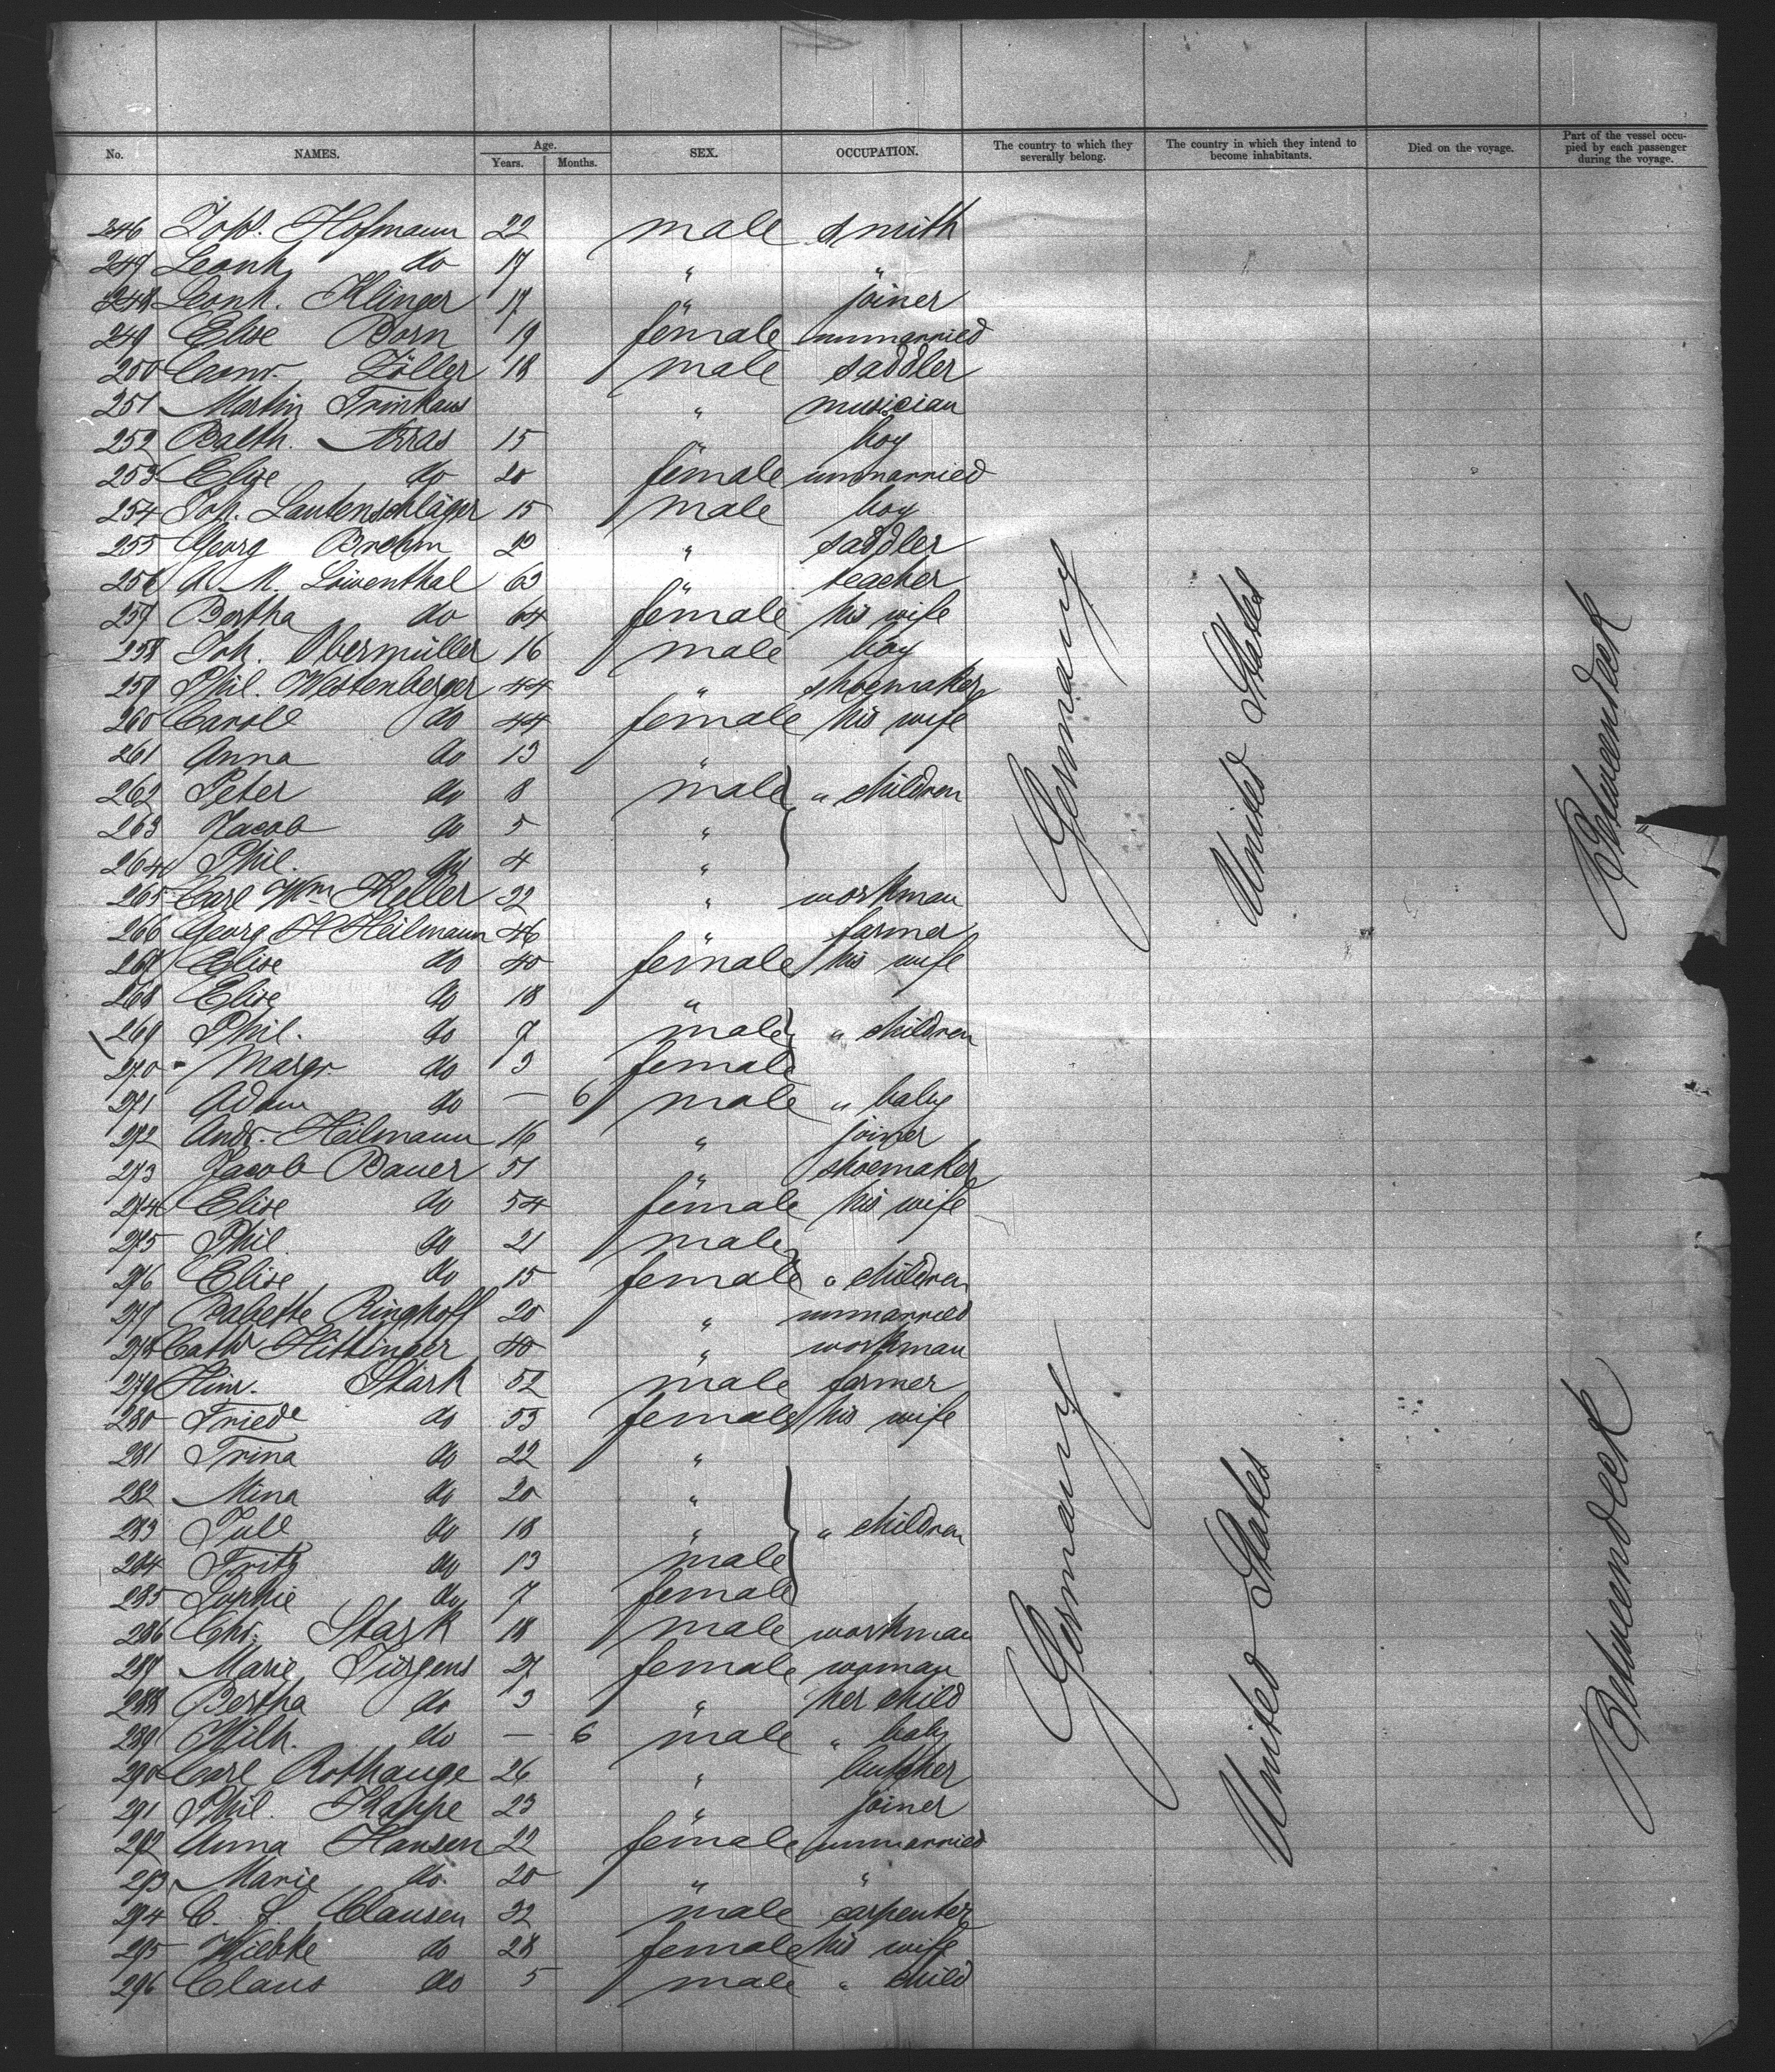 No. NAMES. Age. Years. Months. SEX. OCCUPATION. The country to which they severally belong. The country in which they intend to become inhabitants. Died on the voyage. Part of the vessel occupied by each passenger during the voyage.
246 Hofmann 22 male smith
247 Leonh. do 17 " "
248 Leonh. Klinger 17 " joiner
249 Elise Born 19 female unmarried
250 Conr. Zöller 18 male saddler
251 Martin Trinkaus " musician
252 Balth. Arras 15 " boy
253 Elise do 20 female unmarried
254 Joh. Lautenschläger 15 male boy
255 Georg Brehm " saddler
256 A. M. Löwenthal 63 " teacher
257 Bertha do 64 female his wife
258 Joh. Obermüller 16 male boy
259 Phil. Westenberger 44 " shoemaker
260 Caroll do 44 female his wife
261 Anna do 13 "
262 Peter do 8 male " children
263 Jacob do 5 "
264 Phil. do 4 "
265 Carl Wm Keller 32 " workman
266 Georg H Heilmann 46 " farmer
267 Elise do 40 female his wife
268 Elise do 18 "
269 Phil. do 7 male " children
270 Margr. do 3 female
271 Adam do — 6 male " baby
272 Andr. Heilmann 16 " joiner
273 Jacob Bauer 51 " shoemaker
274 Elise do 54 female his wife
275 Phil. do 21 male
276 Elise do 15 female " children
277 Babette Ringhoff 20 " unmarried
278 Cath Hittinger 40 " workman
279 Hinr. Stark 52 male farmer
280 Friede do 53 female his wife
281 Trina do 22 "
282 Mina do 20 "
283 Jull do 18 " " children
284 Fritz do 13 male
285 Sophie do 7 female
286 Chr. Stark 18 male workman
287 Marie Jürgens 27 female woman
288 Bertha do 3 " her child
289 Wilh. do — 6 male " baby
290 Carl Rothauge 26 " butcher
291 Phil. Kappe 23 " joiner
292 Anna Hansen 22 female unmarried
293 Marie do. 20 " "
294 C. J. Clausen 32 male carpenter
295 Wiebke do 28 female his wife
296 Claus do 5 male " child
Germany
United States
Betweendeck
Germany
United States
Betweendeck